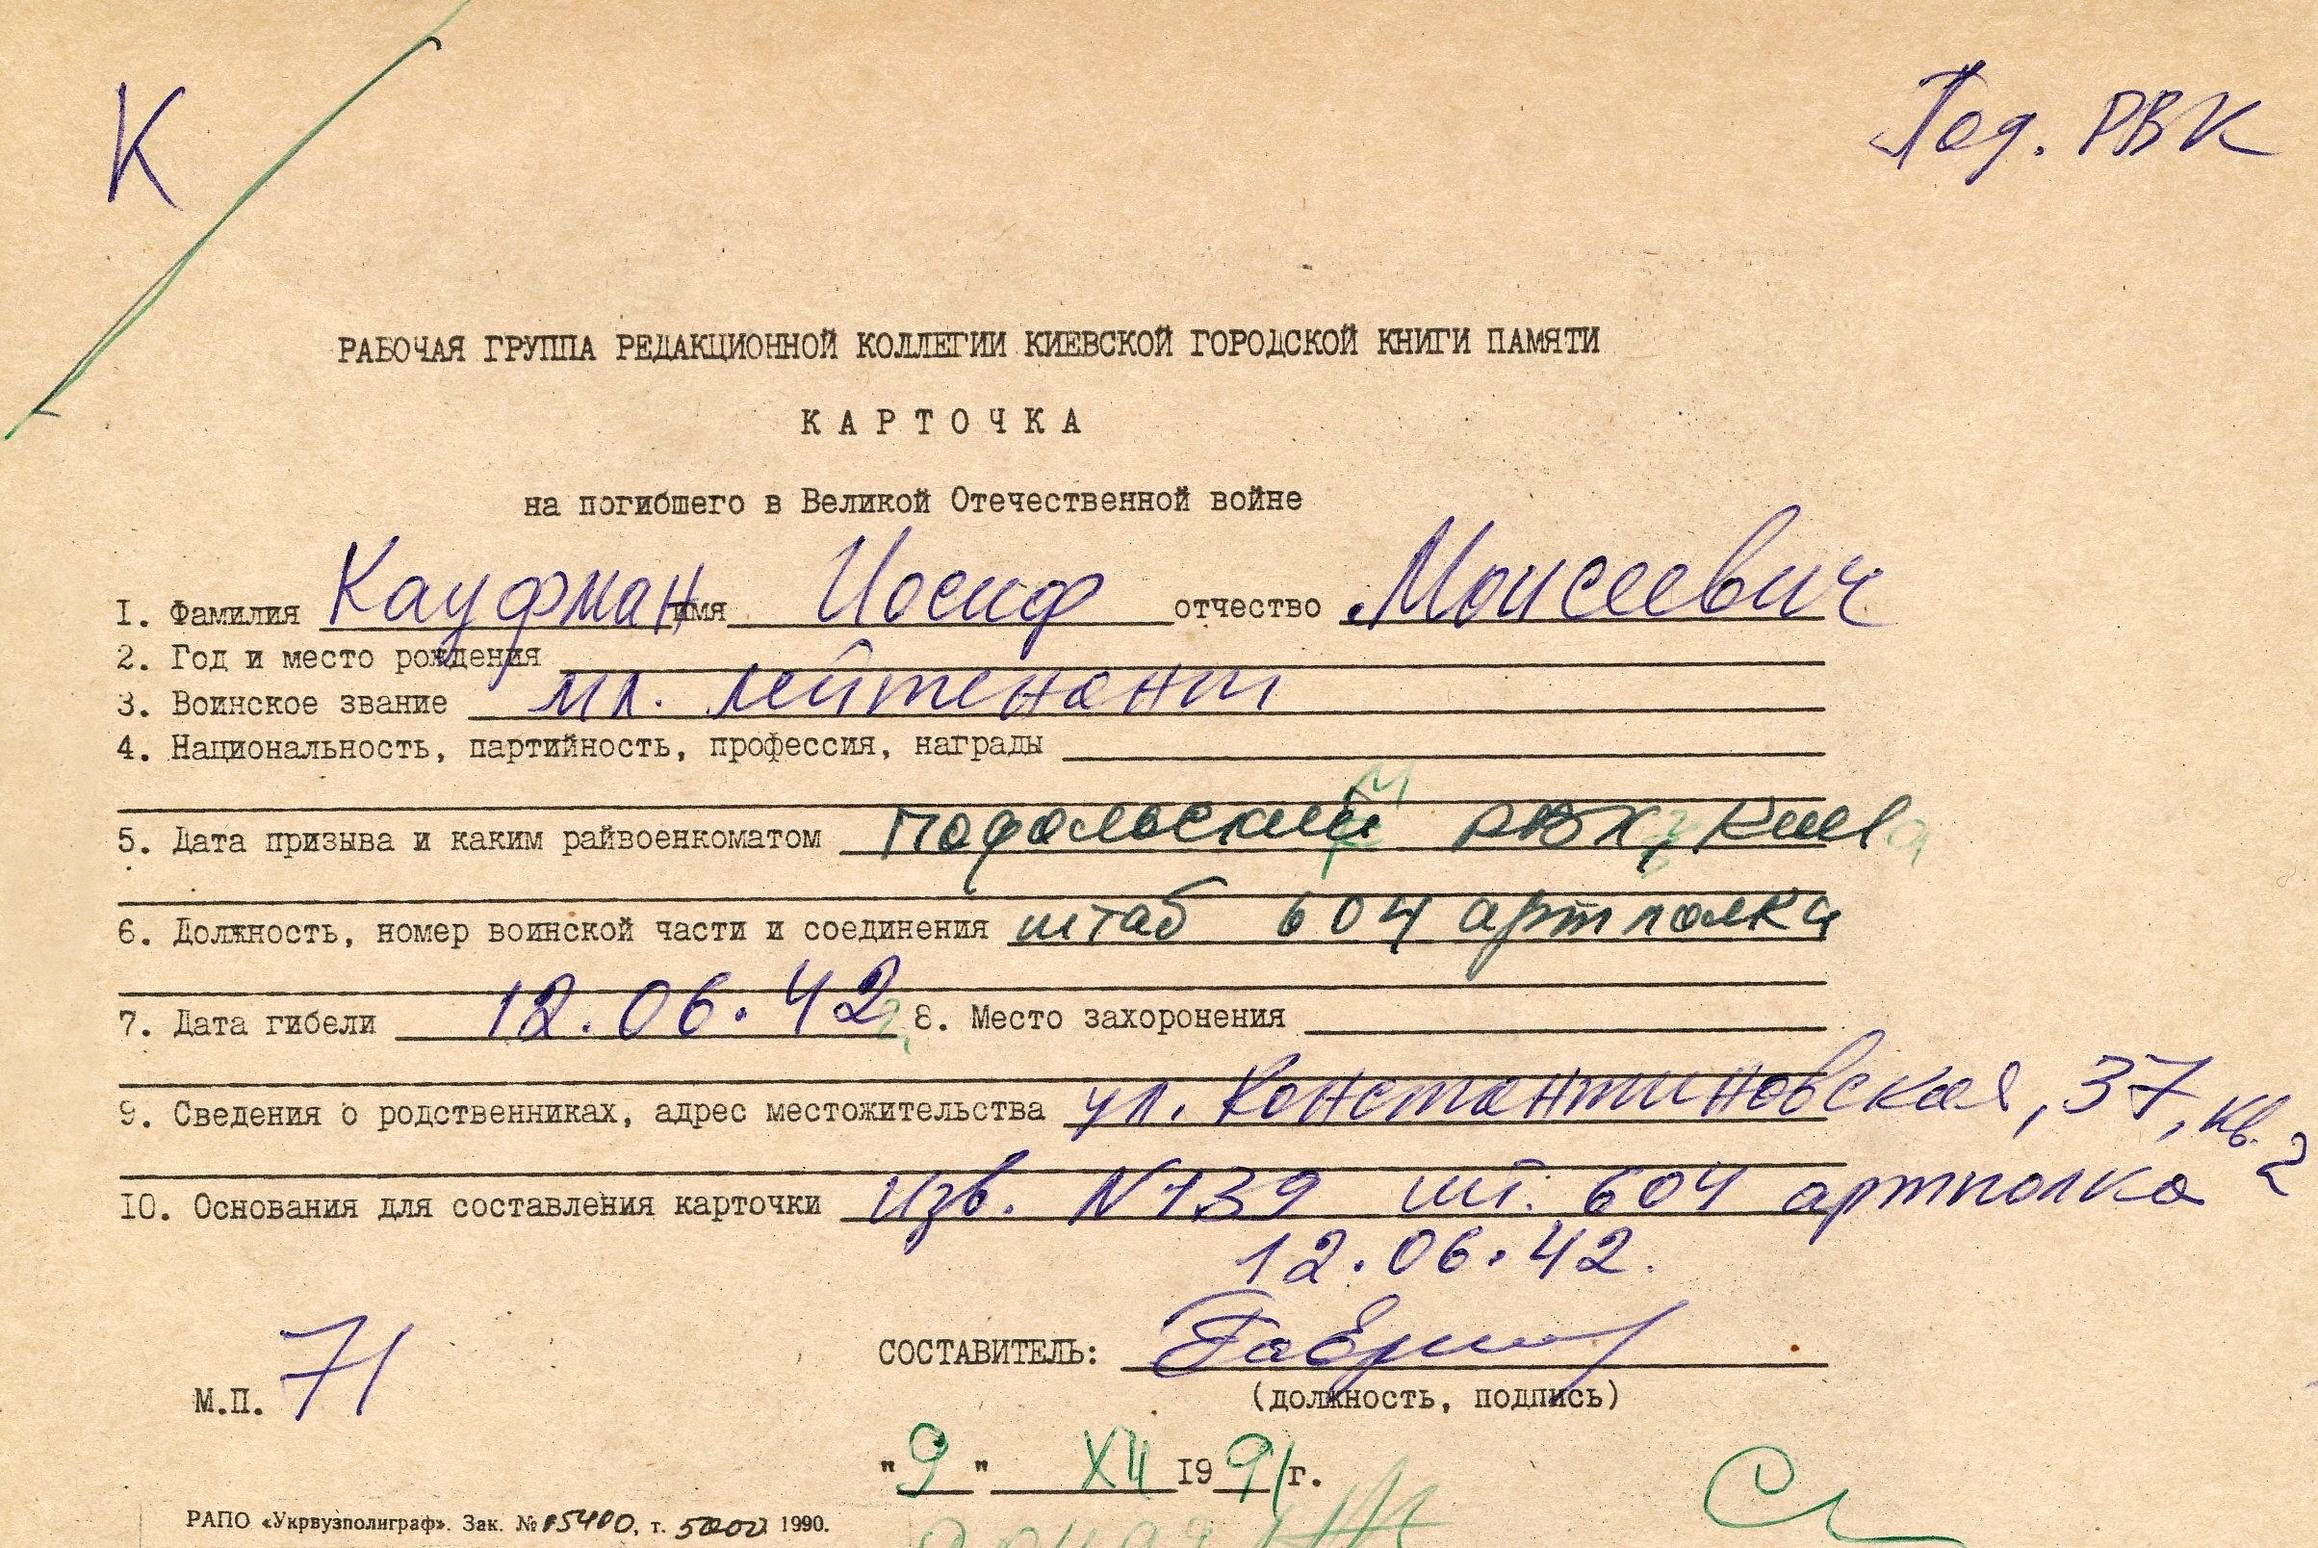 К
Под. РВК
РАБОЧАЯ ГРУППА РЕДАКЦИОННОЙ КОЛЛЕГИИ КИЕВСКОЙ ГОРОДСКОЙ КНИГИ ПАМЯТИ
КАРТОЧКА
на погибшего в Великой Отечественной войне
I. Фамилия Кауфман имя Иосиф отчество Моисеевич
2. Год и место рождения
3. Воинское звание мл. лейтенант
4. Национальность, партийность, профессия, награды
5. Дата призыва и каким райвоенкоматом Подольский РВК, Киева
6. Должность, номер воинской части и соединения штаб 604 артполка
7. Дата гибели 12.06.42 8. Место захоронения
9. Сведения о родственниках, адрес местожительства ул. Константиновская, 37, кв. 2
10. Основания для составления карточки изв. N 139 шт. 604 артполка
12.06.42.
СОСТАВИТЕЛЬ:
(должность, подпись)
М.П. 71
"9" XII 1991 г.
РАПО «Укрвузполиграф». Зак. № 5400, т. 5000 1990.